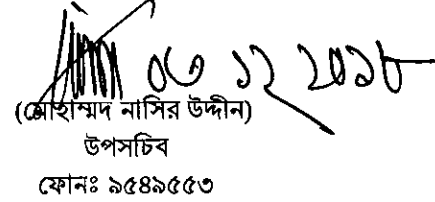 ০৩ ১২ ২০১৮
(মোহাম্মদ নাসির উদ্দীন)
উপসচিব
ফোনঃ ৯৫৪৯৫৫৩